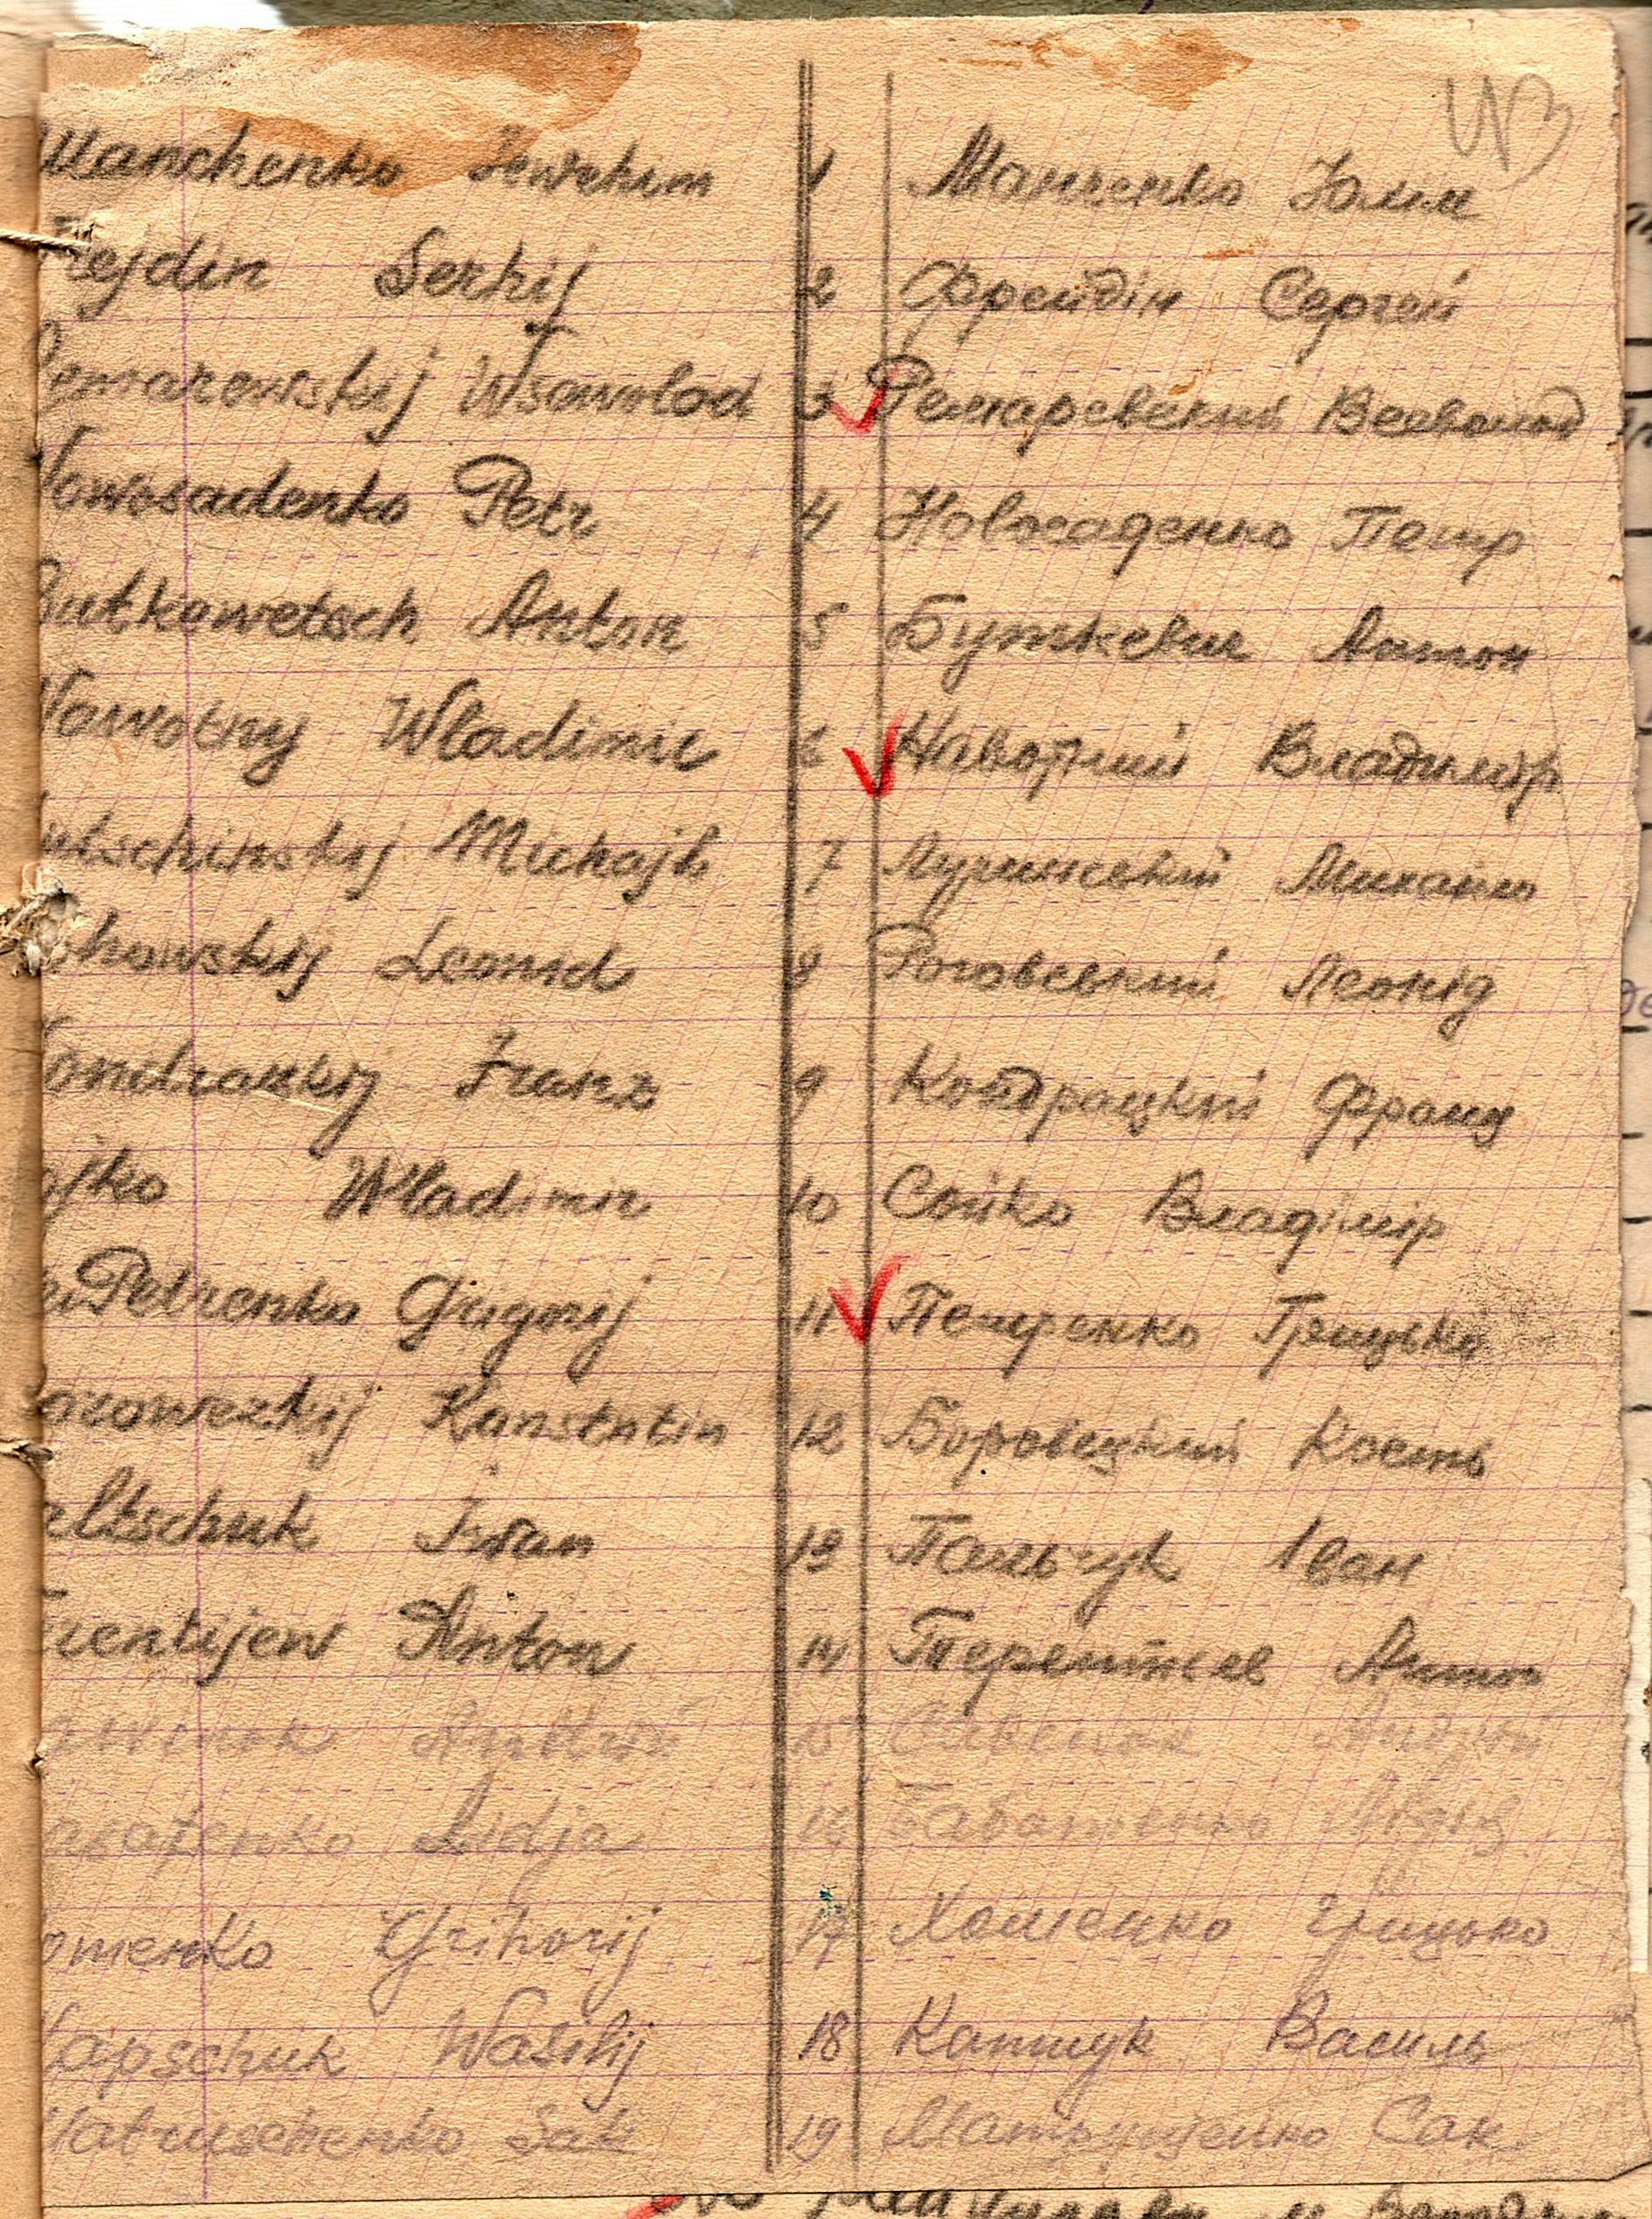 Manchenko 1 Манченко Юхим
Frejdin Serhij 2 Фрейдін Сергей
Remarewskij Wsewolod 3 Ремаревский Всеволод
Nowosadenko Petr 4 Новосаденко Петр
Butkewetsch Anton 5 Буткевич Антон
Nawotny Wladimir 6 Навотний Владимір
utschinskij Michajlo 7 Лучинський Михайло
chowskij Leonid 8 Роговський Леонід
ondrazkij Franz 9 Кондрацкий Франц
ojko Wladimir 10 Сойко Владімір
Petrenko Grigorij 11 Петренко Грицько
orowezkij Konstntin 12 Боровецкий Кость
altschuk Iwan 13 Пальчук Іван
rentijew Anton 14 Терентьев Антон
15 Андрій
Lidja 16
omenko Grihorij 17 Хоменко Грицько
Kapschuk Wasilij 18 Капшук Василь
Matruschenko Sak 19 Матрущенко Сак